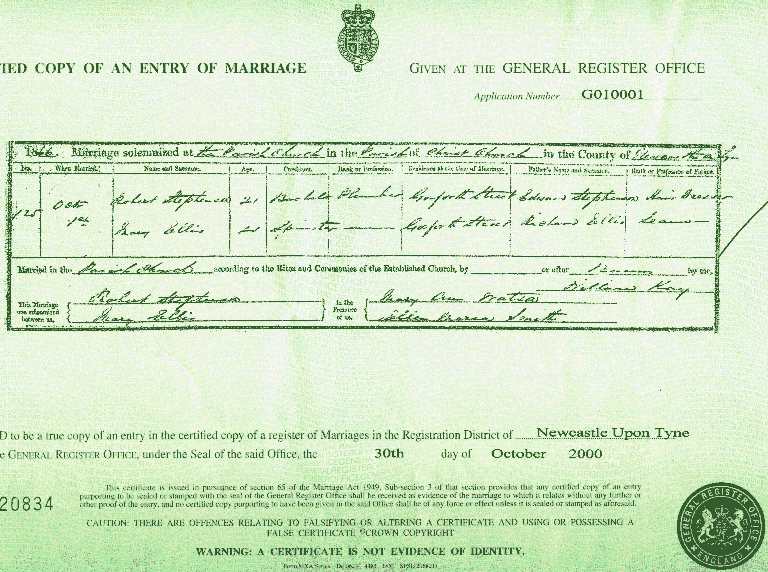 IED COPY OF AN ENTRY OF MARRIAGE
GIVEN AT THE GENERAL REGISTER OFFICE
Application Number G010001
Marriage solemnized at the Parish Church in the Parish of Christ Church in the County of
No. When Married. Name and Surname. Age. Condition. Rank or Profession. Residence at the time of Marriage. Father's Name and Surname. Rank or Profession of Father.
125 Octr Robert Stephenson 21 Bachelor Plumber Gosforth Street Edward Stephenson Hair Dresser
Mary Ellis 21 Spinster Gosforth Street Richard Ellis
Married in the Parish Church according to the Rites and Ceremonies of the Established Church, by or after by me,
Kay
This Marriage was solemnized between us, Robert Stephenson In the Presence of us, Ann
Mary Ellis Smith
D to be a true copy of an entry in the certified copy of a register of Marriages in the Registration District of Newcastle Upon Tyne
e GENERAL REGISTER OFFICE, under the Seal of the said Office, the 30th day of October 2000
This certificate is issued in pursuance of section 65 of the Marriage Act 1949. Sub-section 3 of that section provides that any certified copy of an entry
purporting to be sealed or stamped with the seal of the General Register Office shall be received as evidence of the marriage to which it relates without any further or
other proof of the entry, and no certified copy purporting to have been given in the said Office shall be of any force or effect unless it is sealed or stamped as aforesaid.
20834
CAUTION: THERE ARE OFFENCES RELATING TO FALSIFYING OR ALTERING A CERTIFICATE AND USING OR POSSESSING A
FALSE CERTIFICATE ©CROWN COPYRIGHT
WARNING: A CERTIFICATE IS NOT EVIDENCE OF IDENTITY.
GENERAL REGISTER OFFICE
ENGLAND